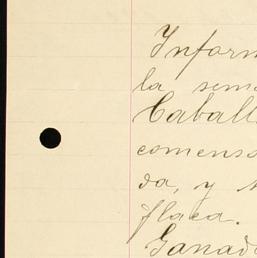 Inform
la sem
Caball
comensa
da, y
flaca.
Ganad